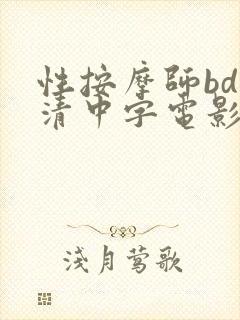 性按摩師bd
清中字電影
淺月莺歌